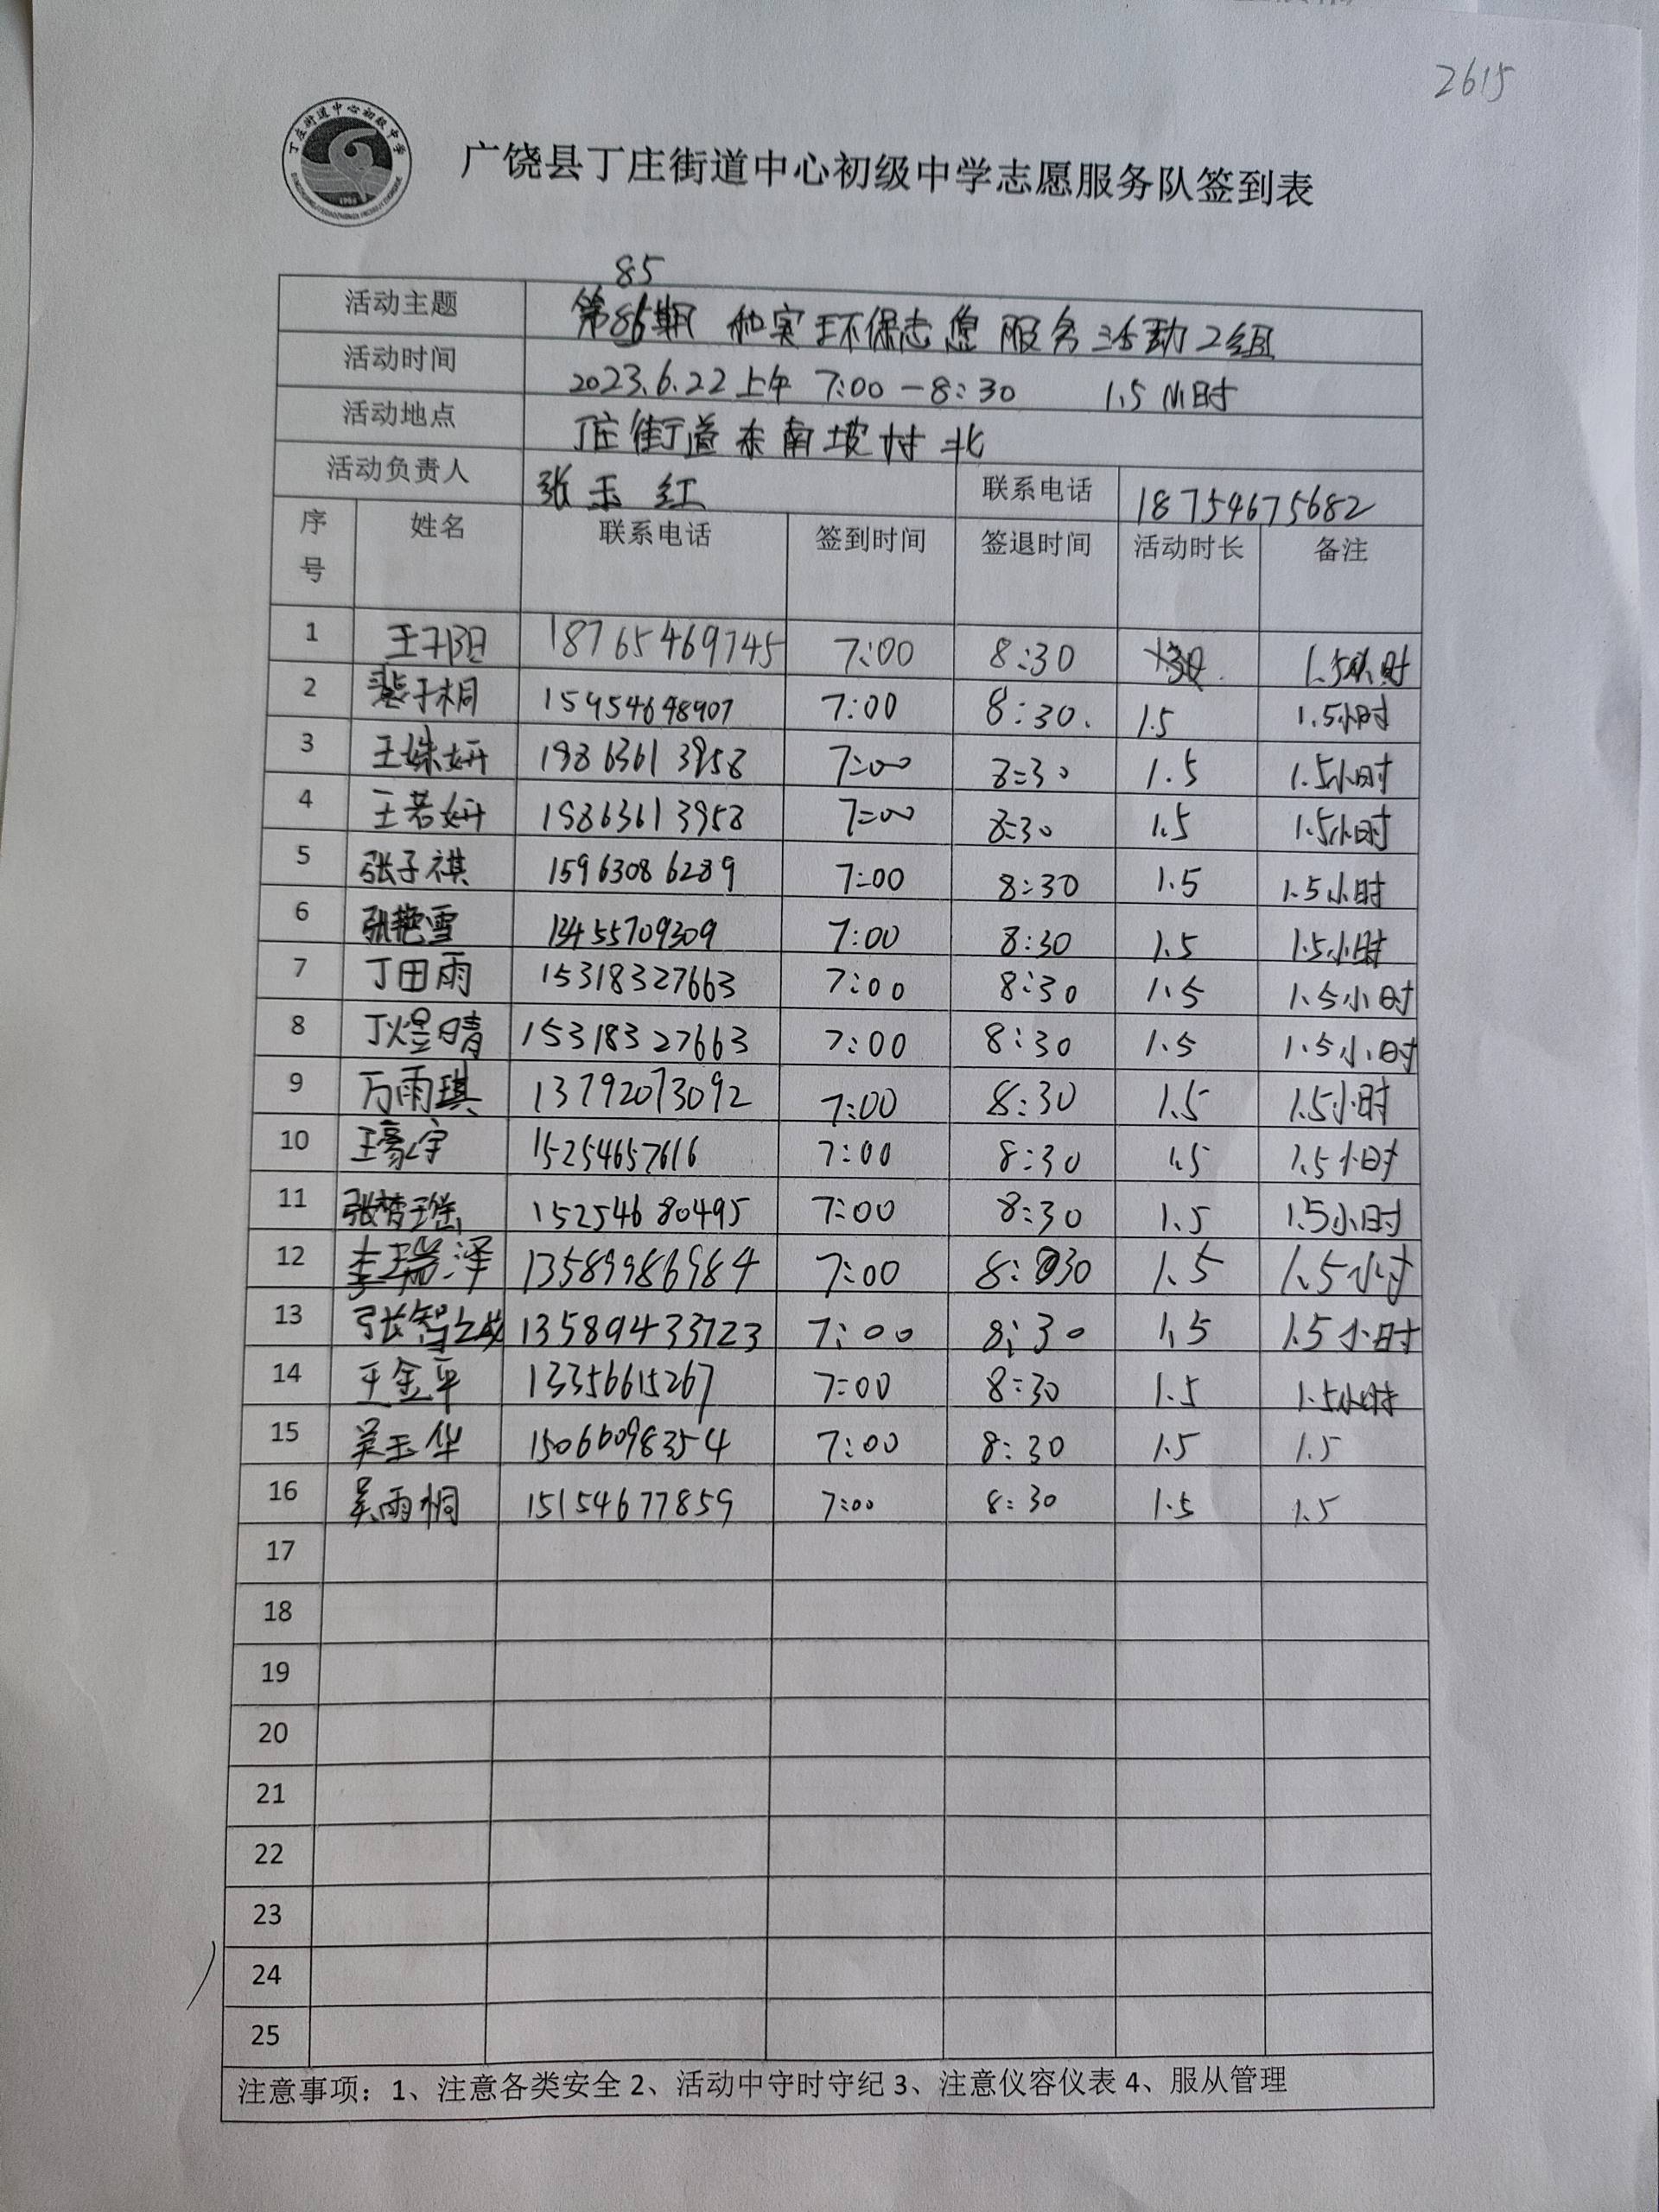 2615
丁庄街道中心初级中学
广饶县丁庄街道中心初级中学志愿服务队签到表
85
活动主题 第86期 和实环保志愿服务活动2组
活动时间 2023.6.22上午 7:00-8:30 1.5小时
活动地点 丁庄街道东南坡村北
活动负责人 张玉红 联系电话 18754675682
序号 姓名 联系电话 签到时间 签退时间 活动时长 备注
1 18765469745 7:00 8:30 1.5小时
2 裴子桐 15954648907 7:00 8:30. 1.5 1.5小时
3 王姝妍 19863613958 7:00 8:30 1.5 1.5小时
4 王若妍 19863613958 7:00 8:30 1.5 1.5小时
5 张子祺 15963086289 7:00 8:30 1.5 1.5小时
6 张艳雪 13455709309 7:00 8:30 1.5 1.5小时
7 丁田雨 15318327663 7:00 8:30 1.5 1.5小时
8 丁煜晴 15318327663 7:00 8:30 1.5 1.5小时
9 万雨琪 13792073092 7:00 8:30 1.5 1.5小时
10 王豪宇 15254657616 7:00 8:30 1.5 1.5小时
11 张梦瑶 15254680495 7:00 8:30 1.5 1.5小时
12 李瑞泽 13589986984 7:00 8:30 1.5 1.5小时
13 13589433723 7:00 8:30 1.5 1.5小时
14 王金平 13356615267 7:00 8:30 1.5 1.5小时
15 吴玉华 15066098354 7:00 8:30 1.5 1.5
16 吴雨桐 15154677859 7:00 8:30 1.5 1.5
17
18
19
20
21
22
23
24
25
注意事项：1、注意各类安全 2、活动中守时守纪 3、注意仪容仪表 4、服从管理